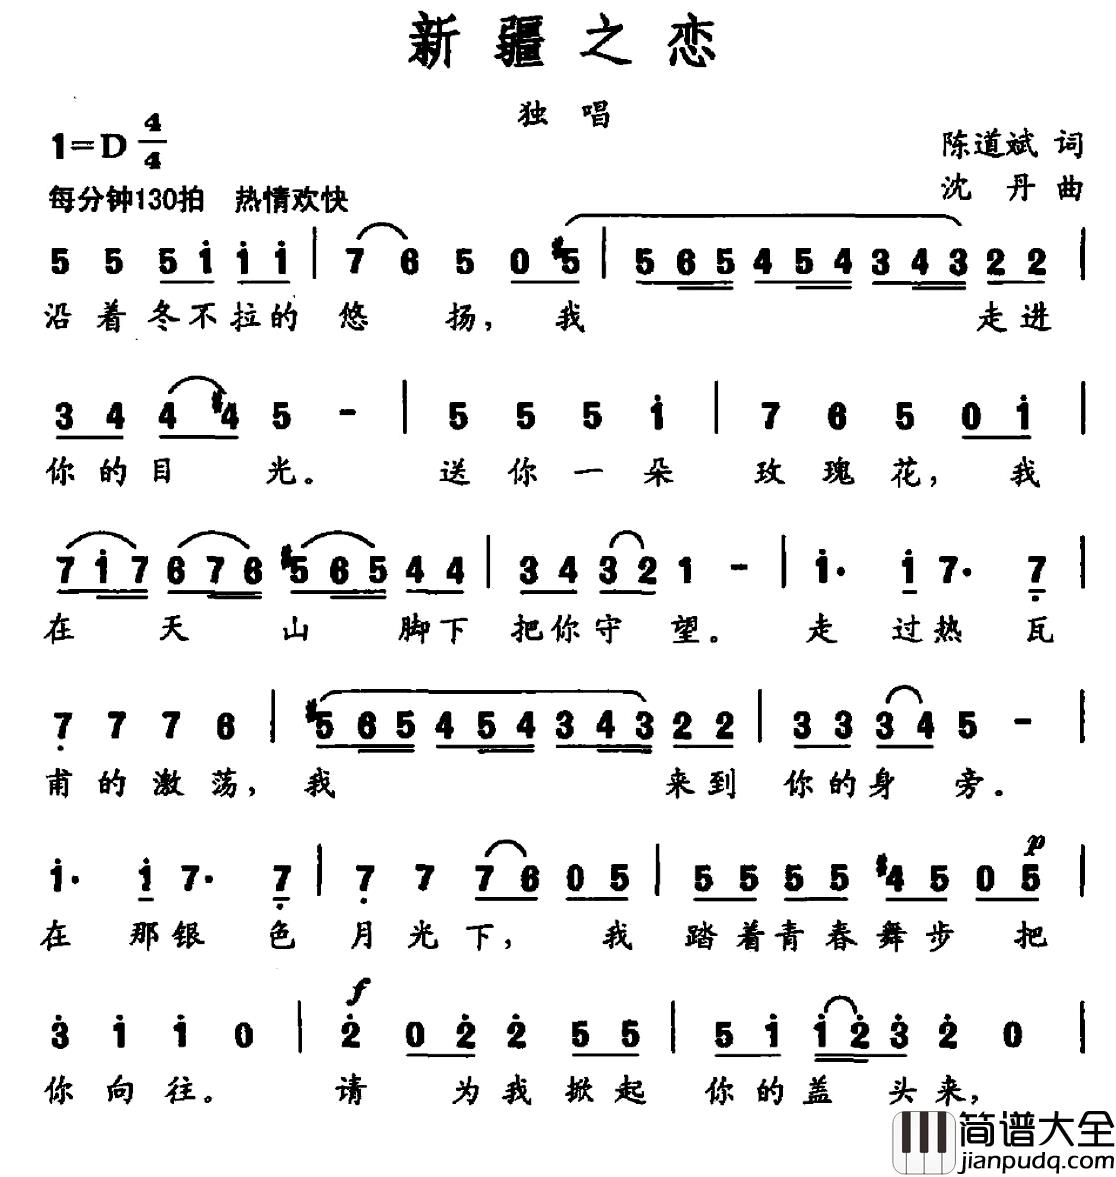 新疆之恋
独唱
1=D 4/4
陈道斌 词
每分钟130拍 热情欢快
沈丹曲
5 5 5 i i i | 7 6 5 0 #5 | 5 6 5 4 5 4 3 4 3 2 2 |
沿着冬不拉的悠扬，我走进
3 4 4 #4 5 - | 5 5 5 i | 7 6 5 0 i |
你的目光。送你一朵玫瑰花，我
7 i 7 6 7 6 #5 6 5 4 4 | 3 4 3 2 1 - | i· i 7· 7 |
在天山脚下把你守望。走过热瓦
7 7 7 6 | #5 6 5 4 5 4 3 4 3 2 2 | 3 3 3 4 5 - |
甫的激荡，我来到你的身旁。
p
i· i 7· 7 | 7 7 7 6 0 5 | 5 5 5 5 #4 5 0 5 |
在那银色月光下，我踏着青春舞步把
f
3 i i 0 | 2 0 2 2 5 5 | 5 i i 2 3 2 0
你向往。请为我掀起你的盖头来，
简谱大全
jianpudq.com